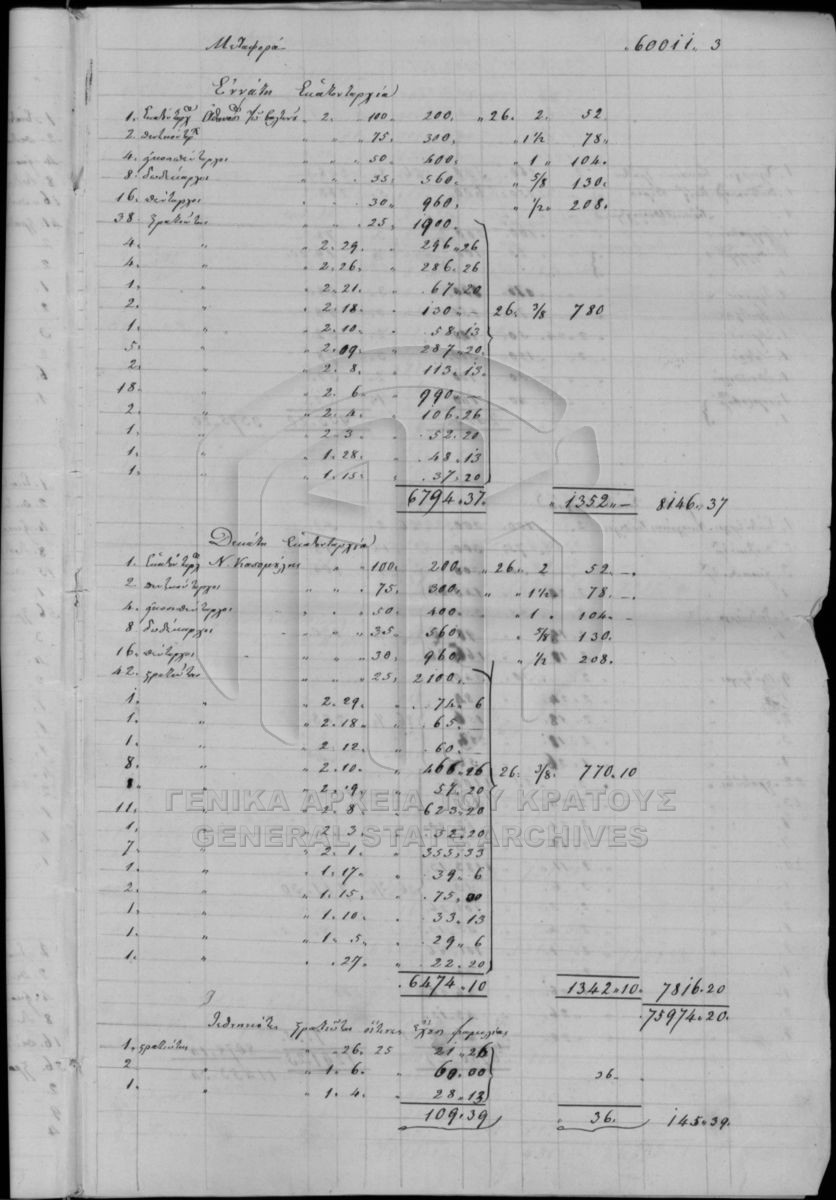 Μεταφορά 60011. 3
Εννάτη Εκατονταρχία
1. 2. " 100 200. " 26. 2. 52
2. " " " 75. 300. " 1 1/2 78"
4. " " " 50 400. " 1 " 104.
8. " " " 35. 560. " 5/8 130.
16. πένταρχοι " 30" 960. " 1/2" 208.
38. στρατιώται " " 25. 1900.
4. " " 2. 29. " 296.26
4. " " 2. 26. " 286.26
1. " " 2. 21. " 67.20
2. " " 2. 18 " 130 " — 26. 3/8 780
1. " " 2. 10. " 58.13
5. " " 2. 09. " 287.20.
2. " " 2. 8. " 113.13.
18. " " 2. 6 " 990.—
2. " " 2. 4. " 106.26
1. " " 2. 3 " 52.20
1. " " 1. 28. " 48.13
1. " " 1. 15. " 37.20
6794.37. " 1352 " — 8146.37
Δεκάτη Εκατονταρχία
1. Ν. Κασομούλης " " 100. 200. " 26 " 2 52. —.
2 " " " 75. 300. " " 1 1/2 78. —.
4. " " 50. 400. " 1 " 104. —
8 " " " 35. 560. " 5/8 130.
16. πένταρχοι " " " 30. 960. " 1/2 208.
42. στρατιώται " " 25. 2100.
1. " " 2. 29. " 74. 6
1. " " 2. 18. " 65. —
1. " " 2. 12. " 60. —
8. " " 2. 10. " 466.26 26. 3/8. 770.10
" " 2. 9. " 57.20
11. " " 2. 8 " 623.20
1. " " 2. 3. " 52.20
7. " " 2. 1. " 355.33
1. " " 1. 17. " 39. 6
2. " " 1. 15. " 75.00
1. " " 1. 10. " 33.13
1. " " 1. 5. " 29. 6
1. " " . 27. " 22.20
6474.10 1342.10. 7816.20
75974.20.
στρατιώται οίτινες είχον φαμιλίας
1. στρατιώτης " " 26. 25 21.26
2 " " 1. 6. " 60.00 36.
1. " " 1. 4. " 28.13
109.39 " 36. 145.39.
ΓΕΝΙΚΑ ΑΡΧΕΙΑ ΤΟΥ ΚΡΑΤΟΥΣ
GENERAL STATE ARCHIVES